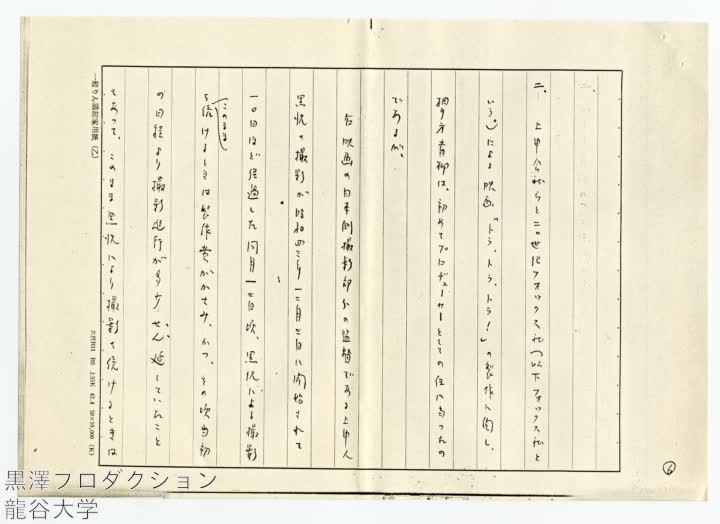 二、上申会社らと二〇世紀フォックス社(以下フォックス社と
いう。)による映画「トラ、トラ、トラ!」の製作に関し、
相手方青柳は、初めてプロデューサーとしての任に当ったの
であるが、
右映画の日本側撮影部分の監督である上申人
黒沢の撮影が昭和四三年一二月三日に開始されて
一〇日ほど経過した同月一三日頃、黒沢による撮影
(このまま)
を続けるときは製作費がかさみ、かつ、その頃当初
の日程より撮影進行が多少ぜん延していたこと
もあって、このまま黒沢により撮影を続けるときは
一般りん議起案用紙(乙)
⑥
黒澤プロダクション
龍谷大学